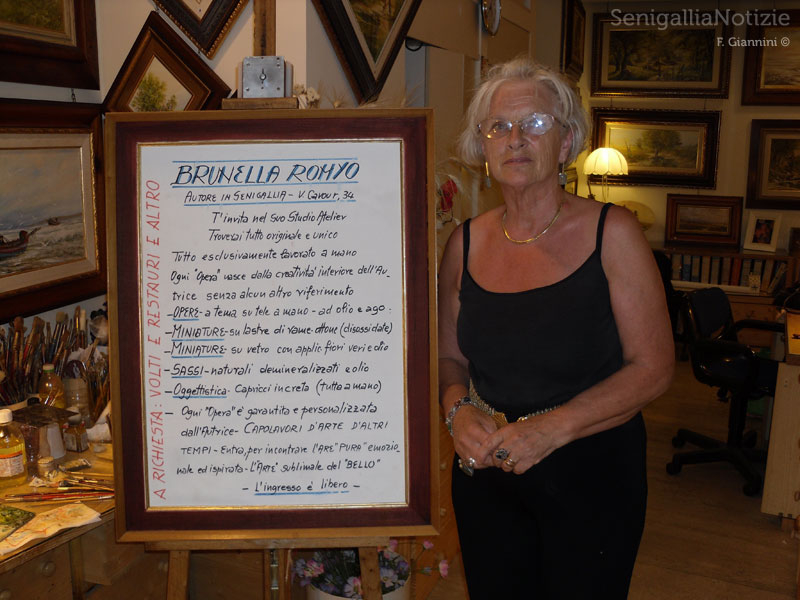 SenigalliaNotizie
F. Giannini ©
BRUNELLA ROMYO
AUTORE IN SENIGALLIA - V. Cavour, 34
T'invita nel suo Studio Atelier
Troverai tutto originale e unico
Tutto esclusivamente lavorato a mano
Ogni "Opera" nasce dalla creatività interiore dell'Au-
trice senza alcun altro riferimento
- OPERE - a tema su tele a mano - ad olio e ago -
- MINIATURE - su lastre di rame-ottone (disossidate)
- MINIATURE - su vetro con applic. fiori veri e olio
- SASSI - naturali demineralizzati e olio
- Oggettistica - Capricci in creta (tutto a mano)
- Ogni "Opera" è garantita e personalizzata
dall'Autrice - CAPOLAVORI D'ARTE D'ALTRI
TEMPI - Entra, per incontrare l'ARTE "PURA" emozio-
nale ed ispirata - L'ARTE sublimale del "BELLO"
- L'ingresso è libero -
A RICHIESTA: VOLTI E RESTAURI E ALTRO